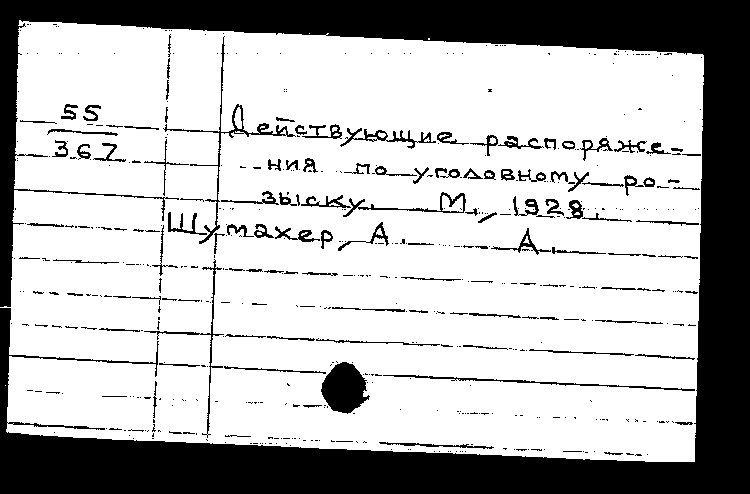 55
367
Действующие распоряже-
ния по уголовному ро-
зыску. М., 1928.
Шумахер, А. А.